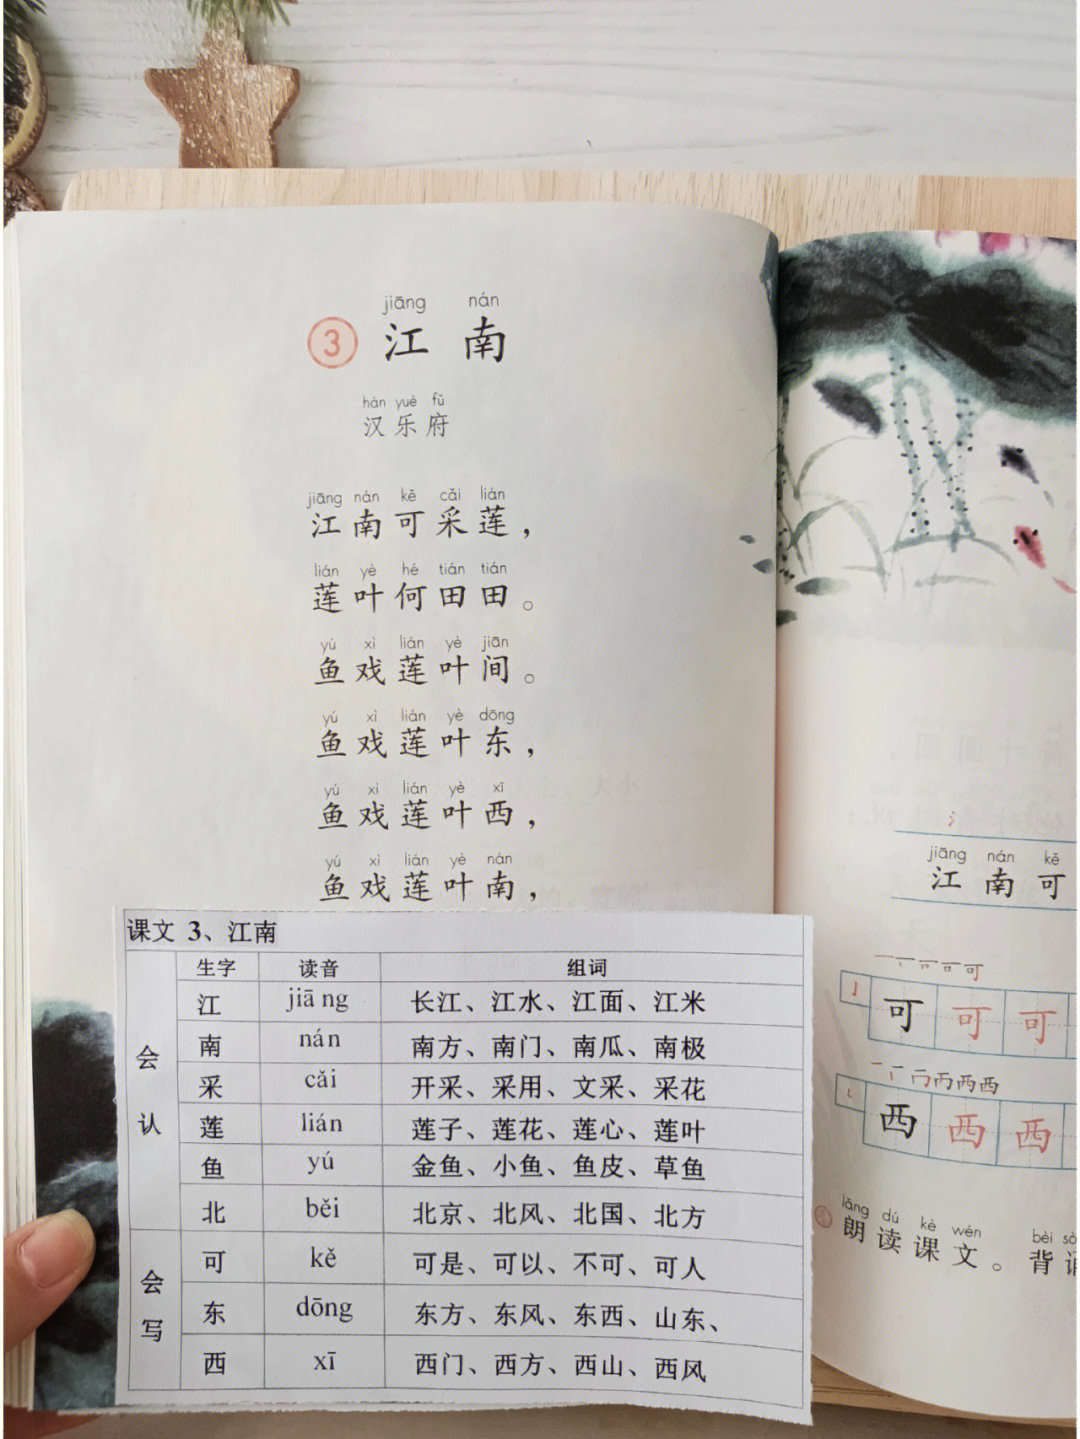 jiāng nán
③ 江南
hàn yuè fǔ
汉乐府
jiāng nán kě cǎi lián
江南可采莲，
lián yè hé tián tián
莲叶何田田。
yú xì lián yè jiān
鱼戏莲叶间。
yú xì lián yè dōng
鱼戏莲叶东，
yú xì lián yè xī
鱼戏莲叶西，
yú xì lián yè nán
鱼戏莲叶南，
课文 3、江南
生字 读音 组词
会认
江 jiāng 长江、江水、江面、江米
南 nán 南方、南门、南瓜、南极
采 cǎi 开采、采用、文采、采花
莲 lián 莲子、莲花、莲心、莲叶
鱼 yú 金鱼、小鱼、鱼皮、草鱼
北 běi 北京、北风、北国、北方
会写
可 kě 可是、可以、不可、可人
东 dōng 东方、东风、东西、山东、
西 xī 西门、西方、西山、西风
jiāng nán kě
江南可
可 可 可
西 西 西
lǎng dú kè wén
朗读课文。背